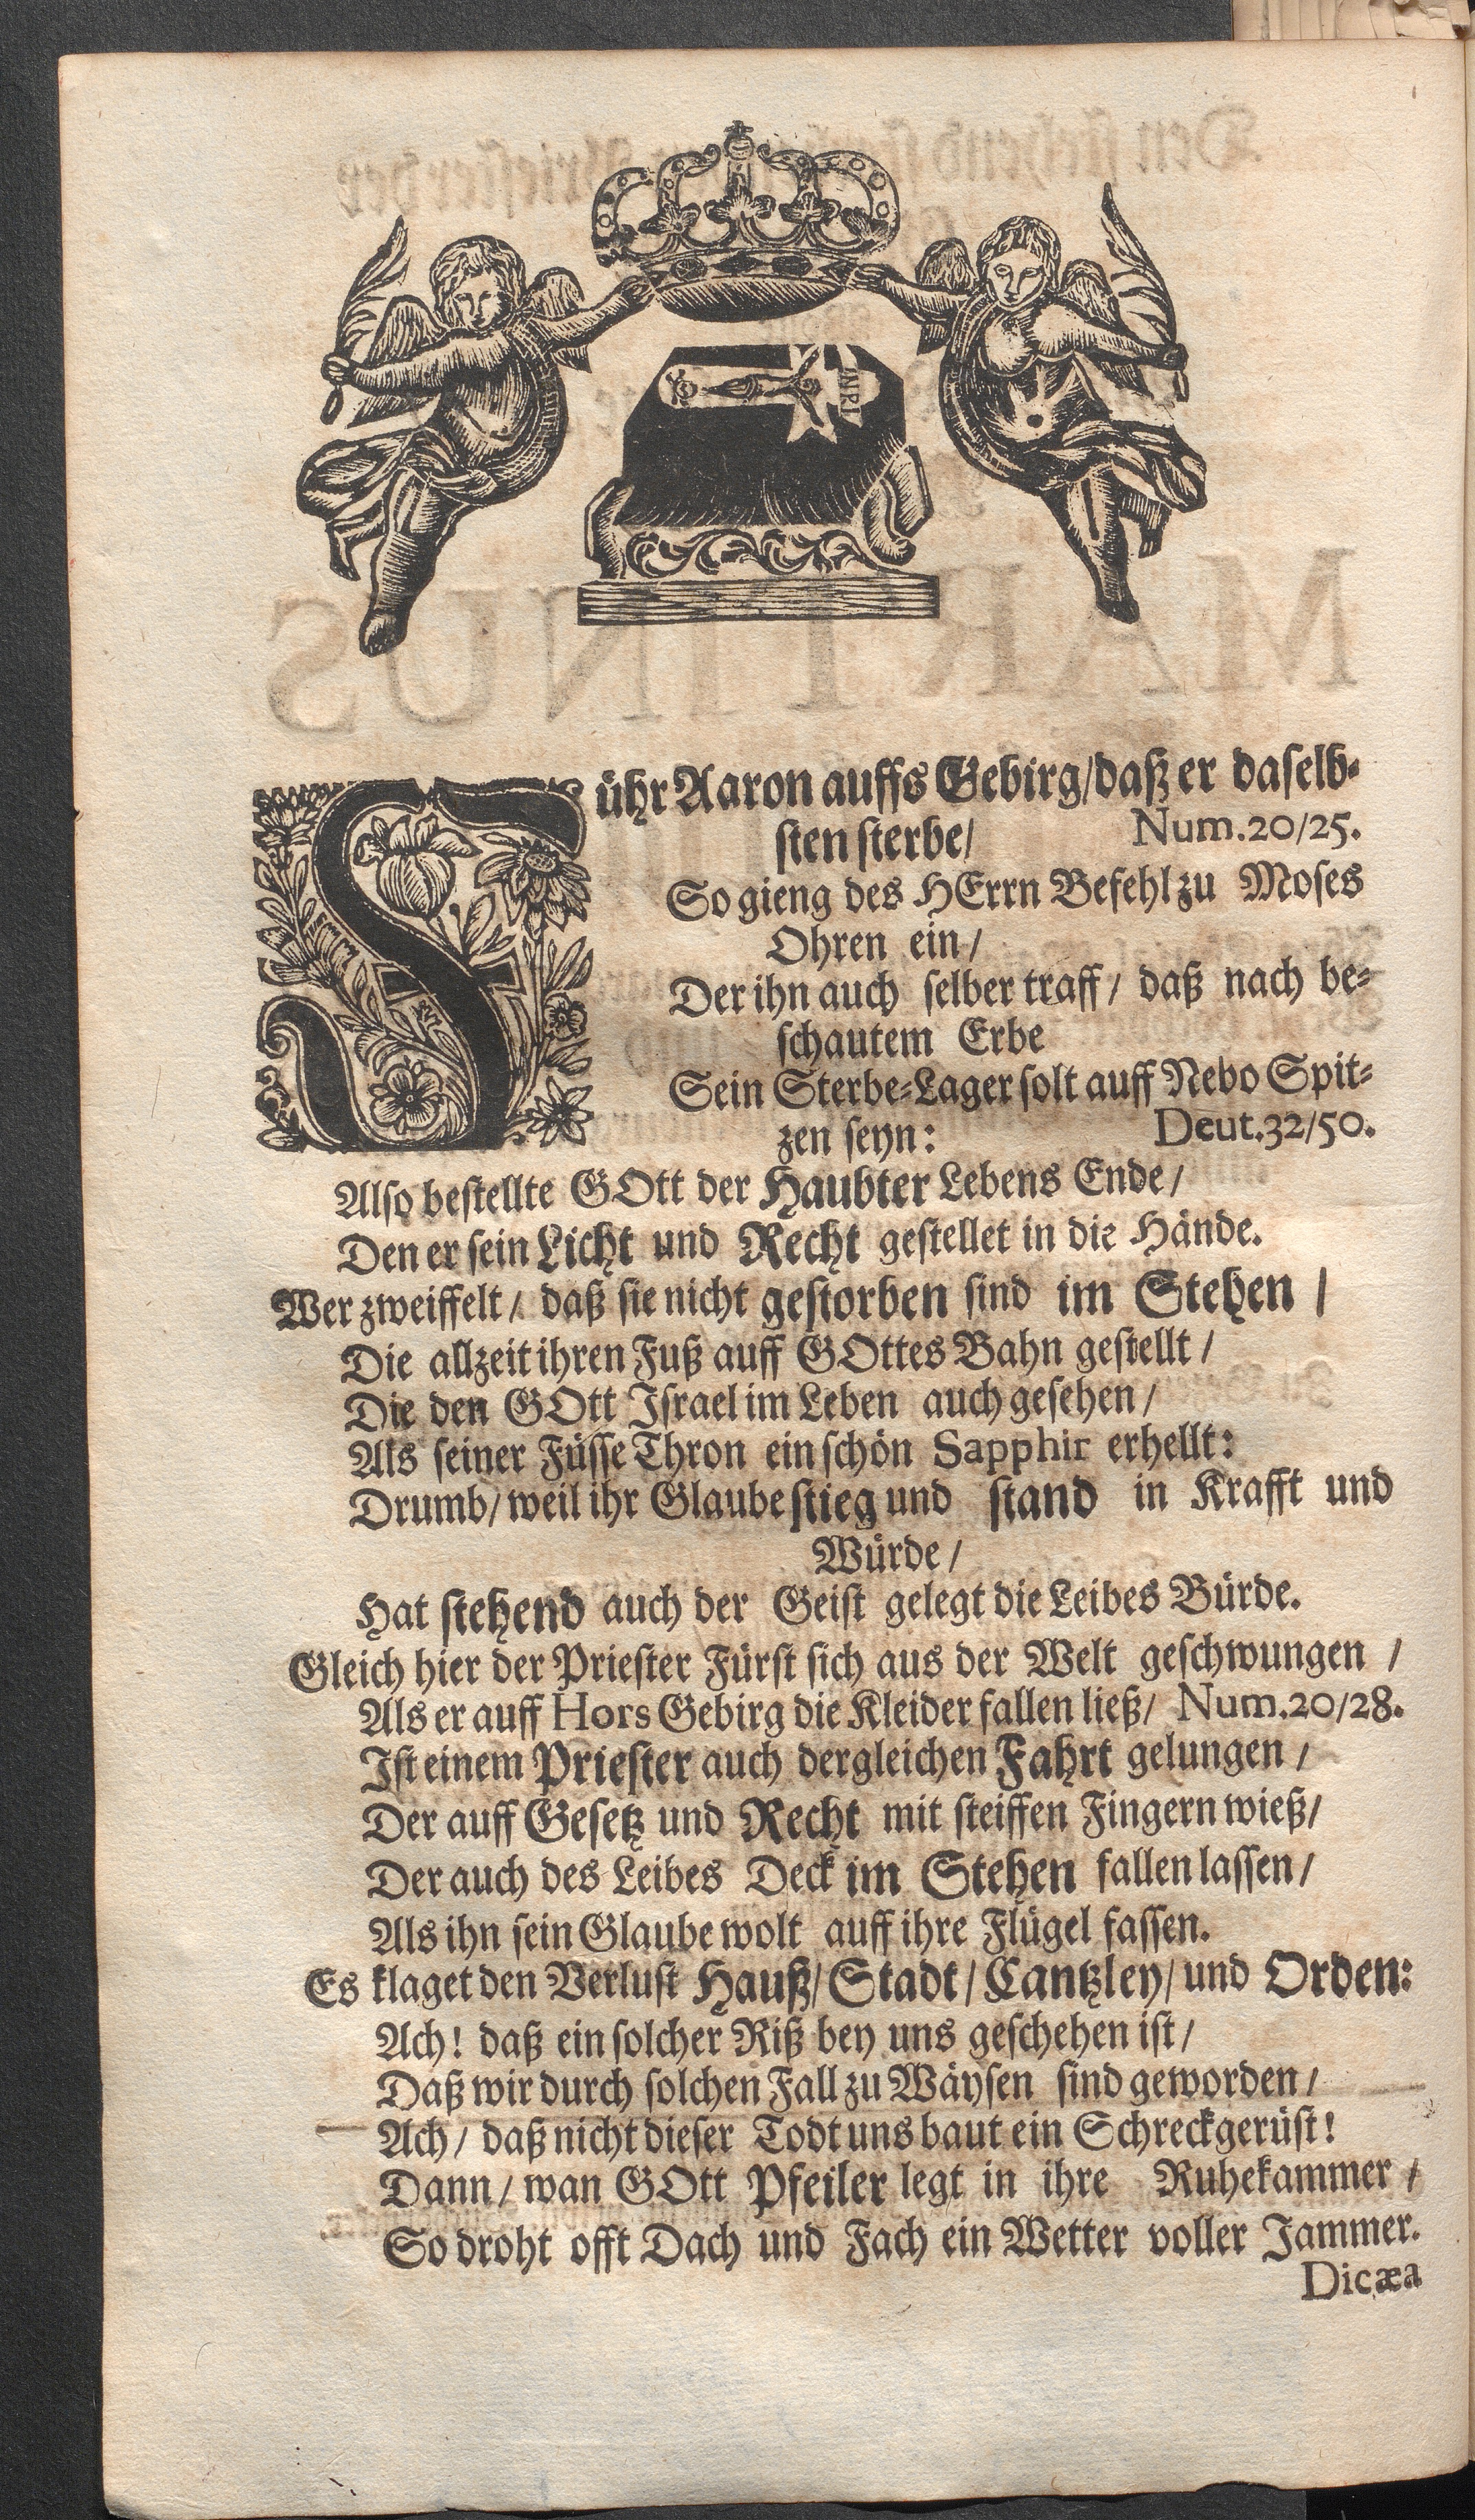 INRI
Führ Aaron auffs Gebirg/daß er daselb-
sten sterbe/ Num.20/25.
So gieng des HErrn Befehl zu Moses
Ohren ein/
Der ihn auch selber traff/ daß nach be-
schautem Erbe
Sein Sterbe-Lager solt auff Nebo Spit-
zen seyn: Deut.32/50.
Also bestellte GOtt der Haubter Lebens Ende/
Den er sein Licht und Recht gestellet in die Hände.
Wer zweiffelt/ daß sie nicht gestorben sind im Stehen/
Die allzeit ihren Fuß auff GOttes Bahn gestellt/
Die den GOtt Israel im Leben auch gesehen/
Als seiner Füsse Thron ein schön Sapphir erhellt:
Drumb/ weil ihr Glaube stieg und stand in Krafft und
Würde/
Hat stehend auch der Geist gelegt die Leibes Bürde.
Gleich hier der Priester Fürst sich aus der Welt geschwungen/
Als er auff Hors Gebirg die Kleider fallen ließ/ Num.20/28.
Ist einem Priester auch dergleichen Fahrt gelungen/
Der auff Gesetz und Recht mit steiffen Fingern wieß/
Der auch des Leibes Deck im Stehen fallen lassen/
Als ihn sein Glaube wolt auff ihre Flügel fassen.
Es klaget den Verlust Hauß/ Stadt/ Cantzley/ und Orden:
Ach! daß ein solcher Riß bey uns geschehen ist/
Daß wir durch solchen Fall zu Wäysen sind geworden/
Ach/ daß nicht dieser Todt uns baut ein Schreckgerüst!
Dann/ wan GOtt Pfeiler legt in ihre Ruhekammer/
So droht offt Dach und Fach ein Wetter voller Jammer.
Dicæa